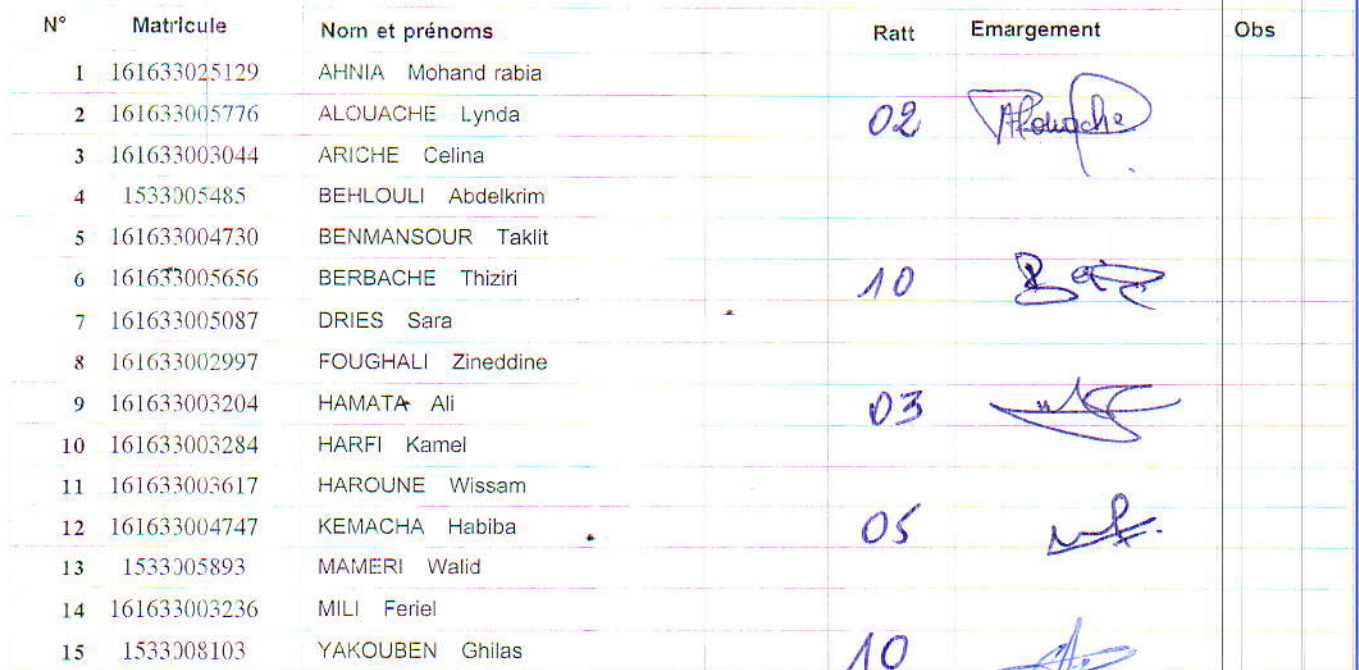 N° Matricule Nom et prénoms Ratt Emargement Obs
1 161633025129 AHNIA Mohand rabia
2 161633005776 ALOUACHE Lynda 02 Alouache
3 161633003044 ARICHE Celina
4 1533005485 BEHLOULI Abdelkrim
5 161633004730 BENMANSOUR Taklit
6 161633005656 BERBACHE Thiziri 10
7 161633005087 DRIES Sara
8 161633002997 FOUGHALI Zineddine
9 161633003204 HAMATA Ali 03
10 161633003284 HARFI Kamel
11 161633003617 HAROUNE Wissam
12 161633004747 KEMACHA Habiba 05
13 1533005893 MAMERI Walid
14 161633003236 MILI Feriel
15 1533008103 YAKOUBEN Ghilas 10